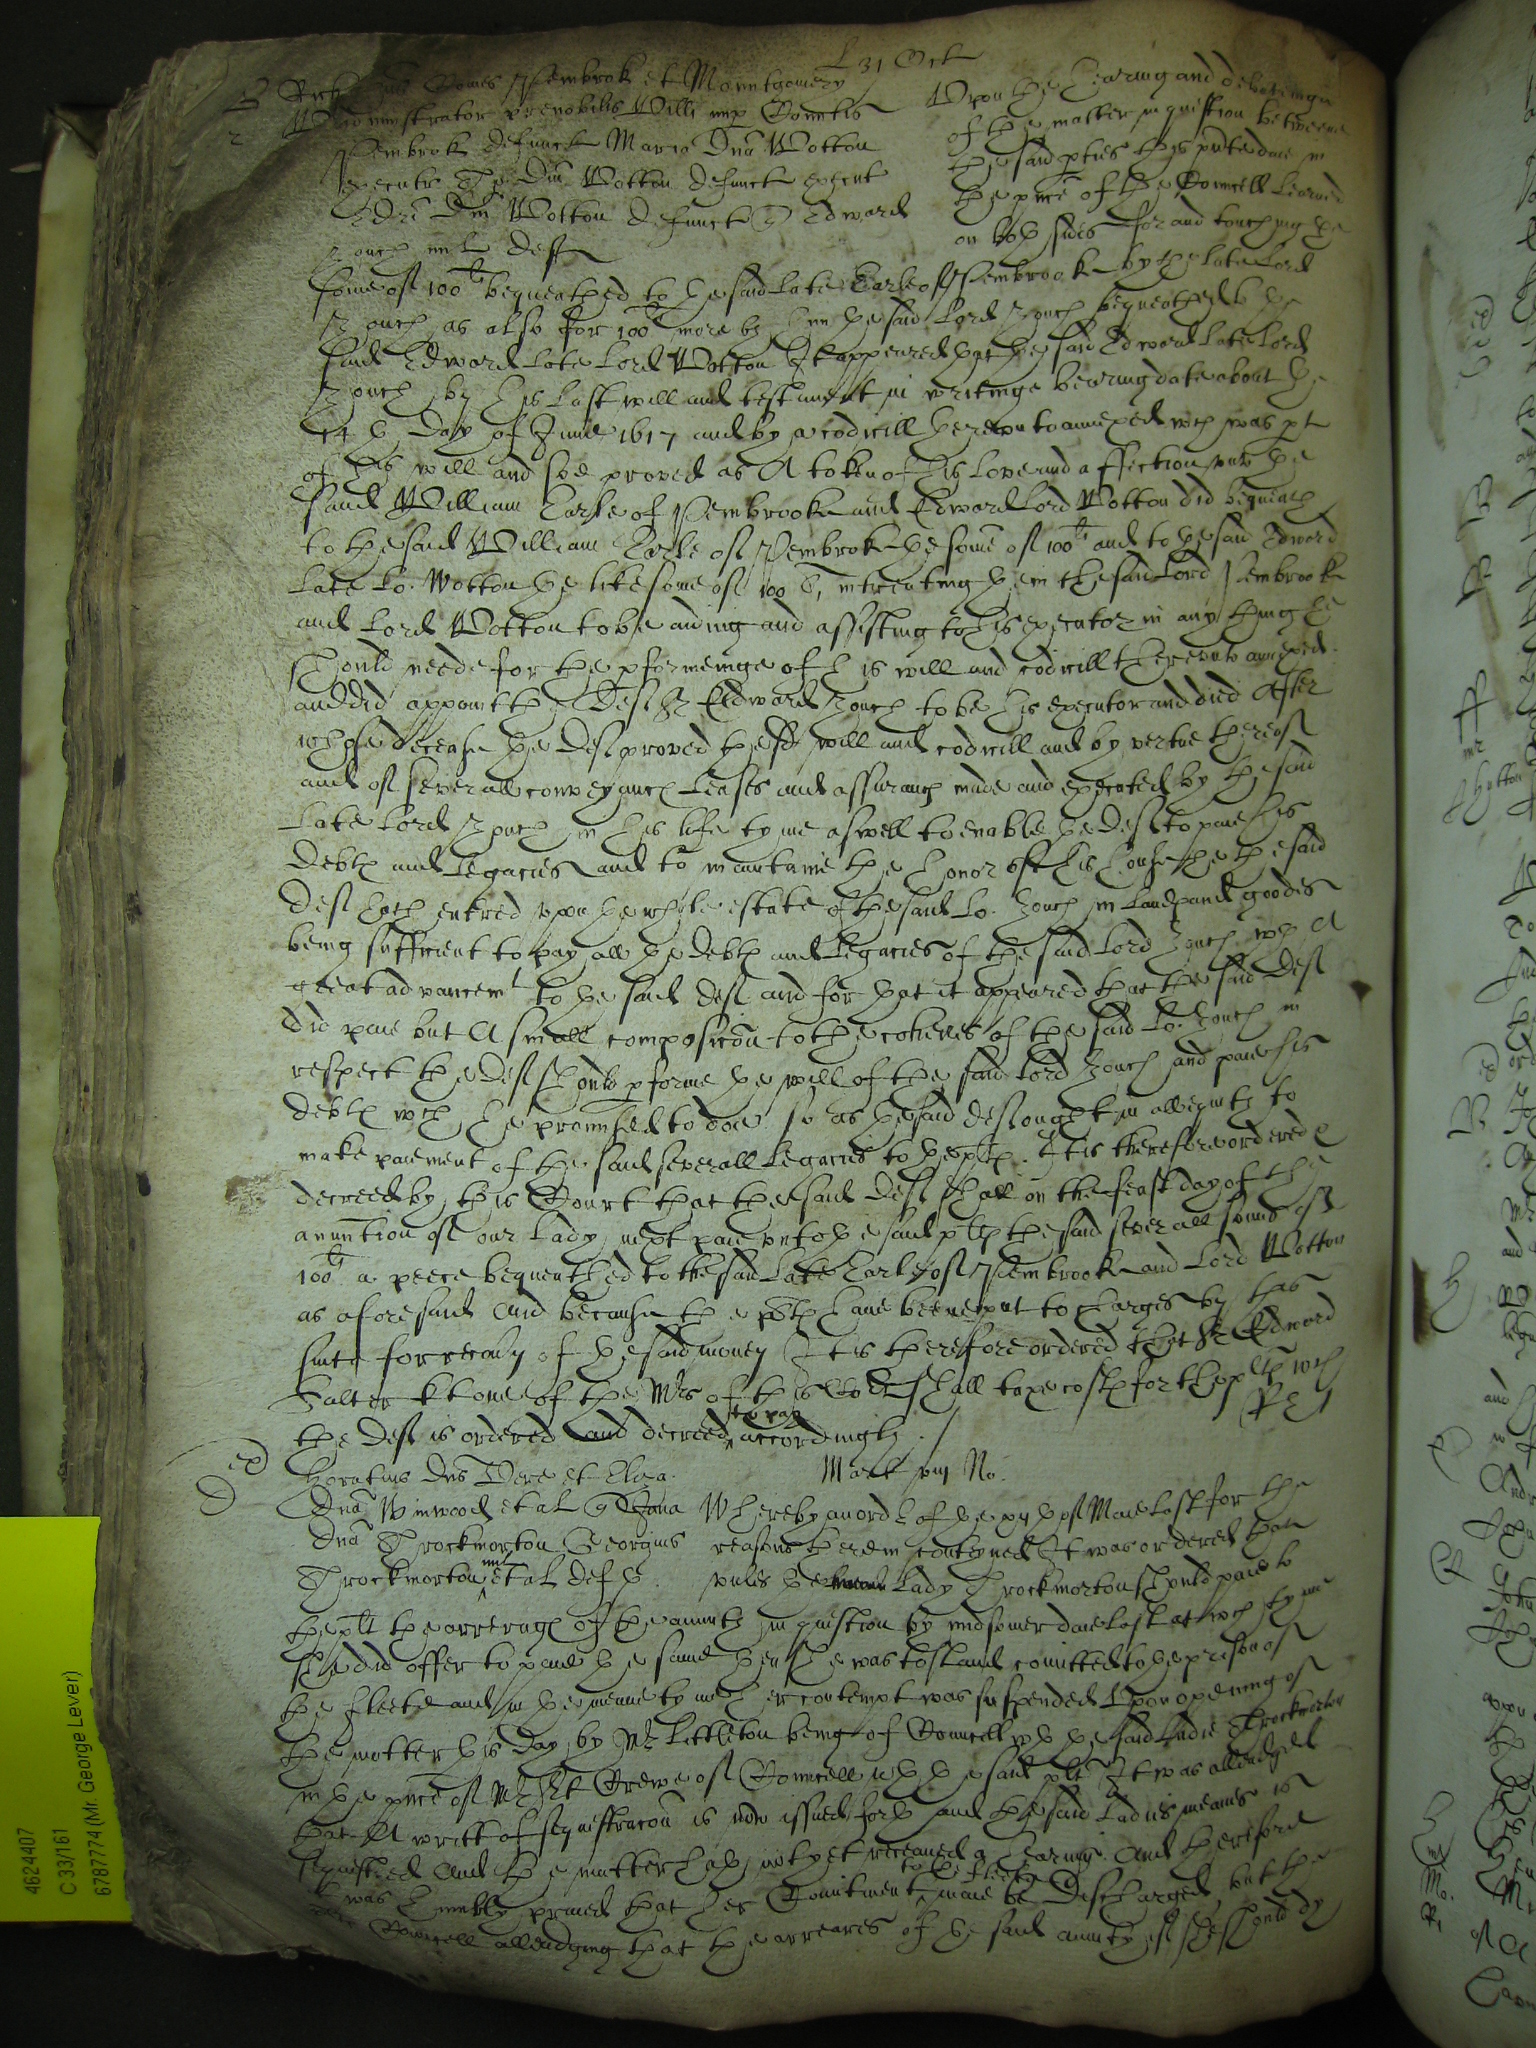 L 31 Oct
Comes Pembrok et Mountgomery
Administrator prenobilis Willi nup Comitis
Pembrok defunct Maria Dna Wotton
executr Tho Dni Wotton defunct execut
Edri Dni Wotton defunct q Edward
Zouch mil deft
Upon the hearing and debating
of the matter in question betweene
the said pties this pnte daie in
the pnce of the Councell Learned
on both sides for and touching the
some of 100li bequeathed to the said late Earle of Pembrook by the late Lord
Zouch as also for 100li more by him the said Lord Zouch bequeathed to the
said Edward late Lord Wotton It appeared that the said Edward late Lord
Zouch by his last will and testament in writinge bearing date about the
14th Day of June 1617 and by a codicill thereunto annexed wch was pt
of his will and soe proved as A token of his love and affection unto the
said William Earle of Pembrooke and Edward Lord Wotton did bequeath
to the said William Earle of Pembrok the some of 100li and to the said Edward
late Lo. Wotton the like some of 100li intreating them the said Lord Pembrook
and Lord Wotton to be aiding and assisting to his executor in any thing he
should neede for the pformeinge of his will and codicill thereunto annexed
and did appoint the Deft Sr Edward Zouch to be his executor and died After
whose decease the Deft proved the sd will and codicill and by vertue thereof
and of severall conveyances Leases and assurances made and executed by the said
late Lord Zouch in his life tyme aswell to enable the Deft to paie his
Debtes and Legacies and to maintaine the honor of his house he the said
Deft hath entred upon the whole estate of the said Lo. Zouch in landes and goodes
being sufficient to pay all the Debtes and Legacies of the said Lord Zouch wth A
great advancemt to the said Deft and for that it appeared that the said Deft
did paie but A small composicon to the coheires of the said Lo. Zouch in
respect the Deft should pforme the will of the said Lord Zouch and paie his
debtes wch he promised to doe so as the said Deft ought in all equity to
make paiement of the said severall Legacies to the pltes. It is therefore ordered &
decreed by this Court that the said Deft shall on the feast day of the
anuntion of our Lady next paie unto the said pltes the said severall somes of
100li a peece bequeathed to the said late Earle of Pembrooke and Lord Wotton
as aforesaid And because the pltes have beene put to charges by this
suite for recovery of the said money It is therefore ordered that Sr Edward
Salter kt one of the Mrs of this Court shall taxe costes for the pltes wch
the Deft is ordered and decreed to pay accordingly
Horatius Dns Vere et Eliza
Dna Winwood et al q Dna
Dna Throckmorton Georgius
Throckmorton mil et al defts
Mart viij No.
Whereby an order of the xijth of Maie last for the
reasons therein conteyned It was ordered that
unles the Lady Throckmorton should paie to
the plt the arrerages of the annuity in question by midsomer daie last at wch tyme
she did offer to paie the same then she was to stand comitted to the prison of
the Fleete and in the meane tyme her contempt was suspended Upon opening of
the matter this day by Mr Littleton being of Councell wth the said Ladie Throckmorton
in the pnce of Mr Srt Crewe of Councell wth the said plte It was alleadged
that A writt of sequestracon is now issued forth and the said Ladies meanes is
sequestred And the matter hath not yet receaved a hearing And therefore
it was humbly praied that her Comitment to the Fleete maie be Discharged, but the
Councell alleadging that the arreares of the said annuity if she should dy
4624407
C 33/161
6787774 (Mr. George Lever)